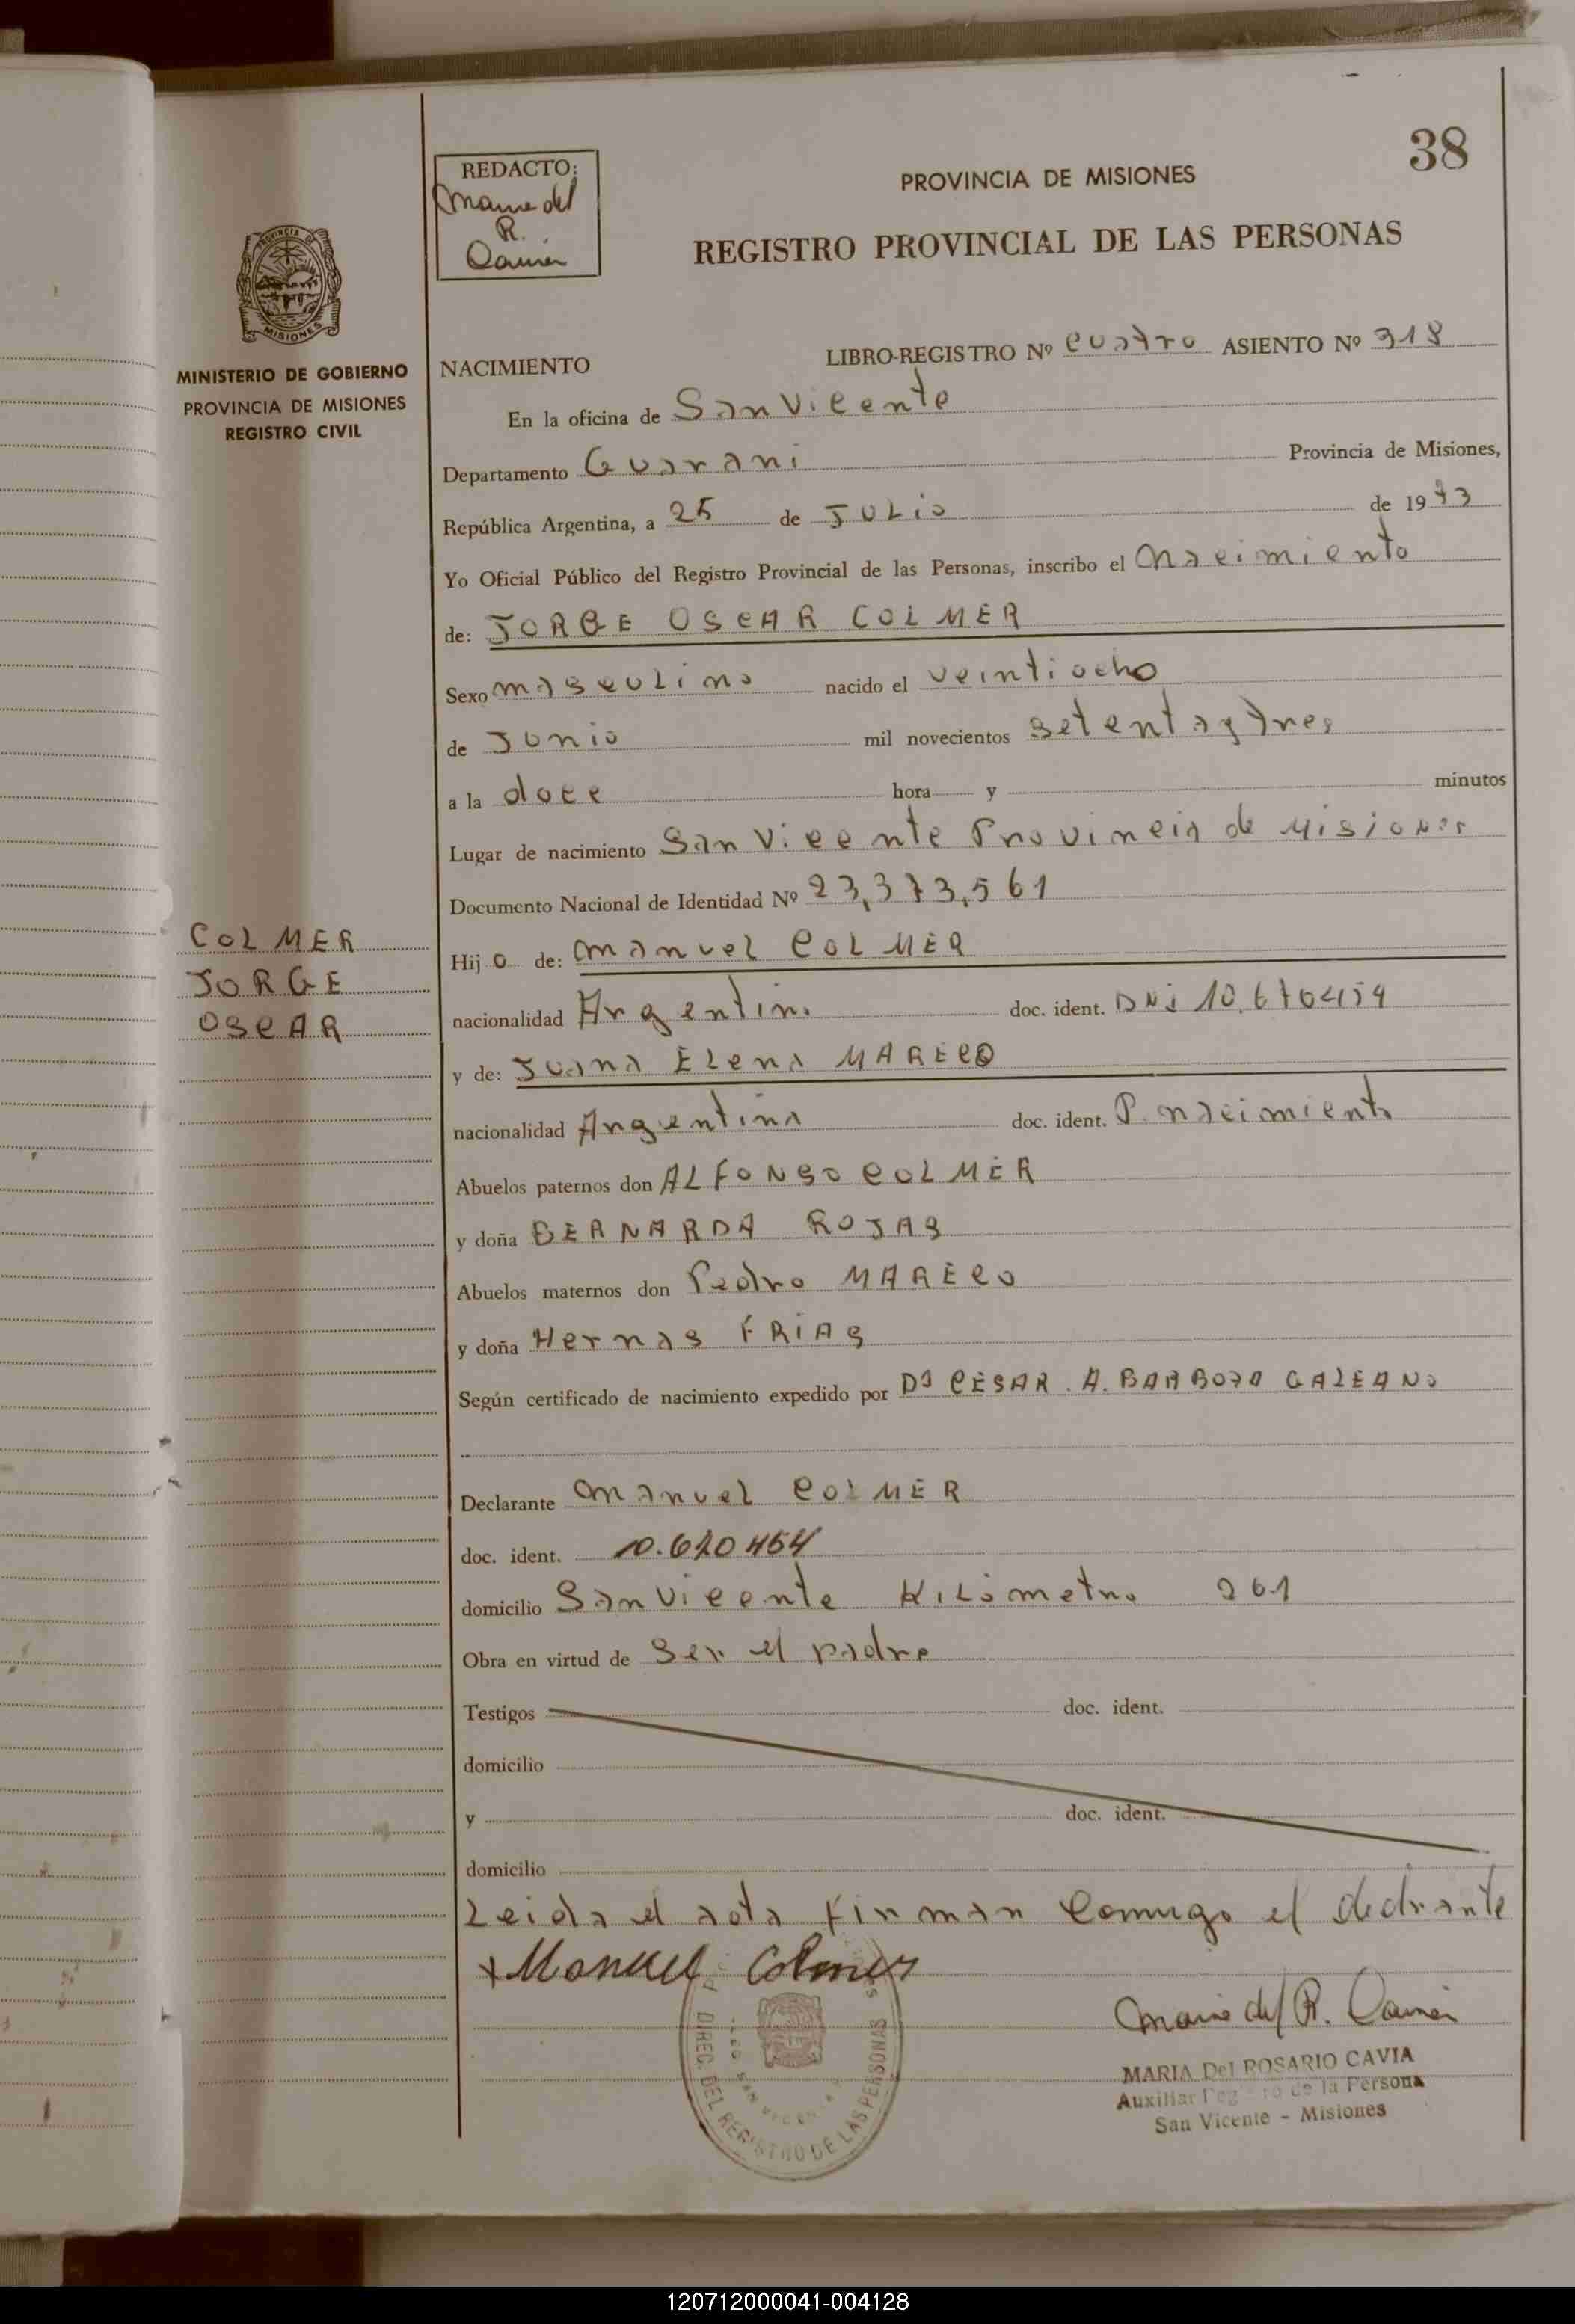 38
REDACTO:
Maria del
R.
Cavia
PROVINCIA DE MISIONES
REGISTRO PROVINCIAL DE LAS PERSONAS
PROVINCIA DE
MISIONES
MINISTERIO DE GOBIERNO
PROVINCIA DE MISIONES
REGISTRO CIVIL
NACIMIENTO LIBRO-REGISTRO Nº cuatro ASIENTO Nº 318
En la oficina de San Vicente
Departamento Guarani Provincia de Misiones,
República Argentina, a 25 de JULio de 1973
Yo Oficial Público del Registro Provincial de las Personas, inscribo el nacimiento
de: JORGE OSCAR COLMER
Sexo masculino nacido el veintiocho
de Junio mil novecientos setenta y tres
a la doce hora y minutos
Lugar de nacimiento San Vicente Provincia de Misiones
Documento Nacional de Identidad Nº 23,373,561
COLMER
JORGE
OSCAR
Hijo de: manuel COLMER
nacionalidad Argentina doc. ident. DNi
y de: Juana Elena MARECO
nacionalidad Argentina doc. ident. P. nacimiento
Abuelos paternos don ALFONSO COLMER
y doña BERNARDA ROJAS
Abuelos maternos don Pedro MARECO
y doña Hernas FRIAS
Según certificado de nacimiento expedido por CESAR. A. BARBOZA GALEANO
Declarante manuel COLMER
doc. ident.
domicilio San Vicente Kilometro 261
Obra en virtud de Ser el padre
Testigos doc. ident.
domicilio
y doc. ident.
domicilio
Leida el acta firman conmigo el declarante
+Manuel Colmer
DIREC. DEL REGISTRO DE LAS PERSONAS
SAN VICENTE
Maria del R. Cavia
MARIA Del ROSARIO CAVIA
Auxiliar de la Persona
San Vicente - Misiones
120712000041-004128